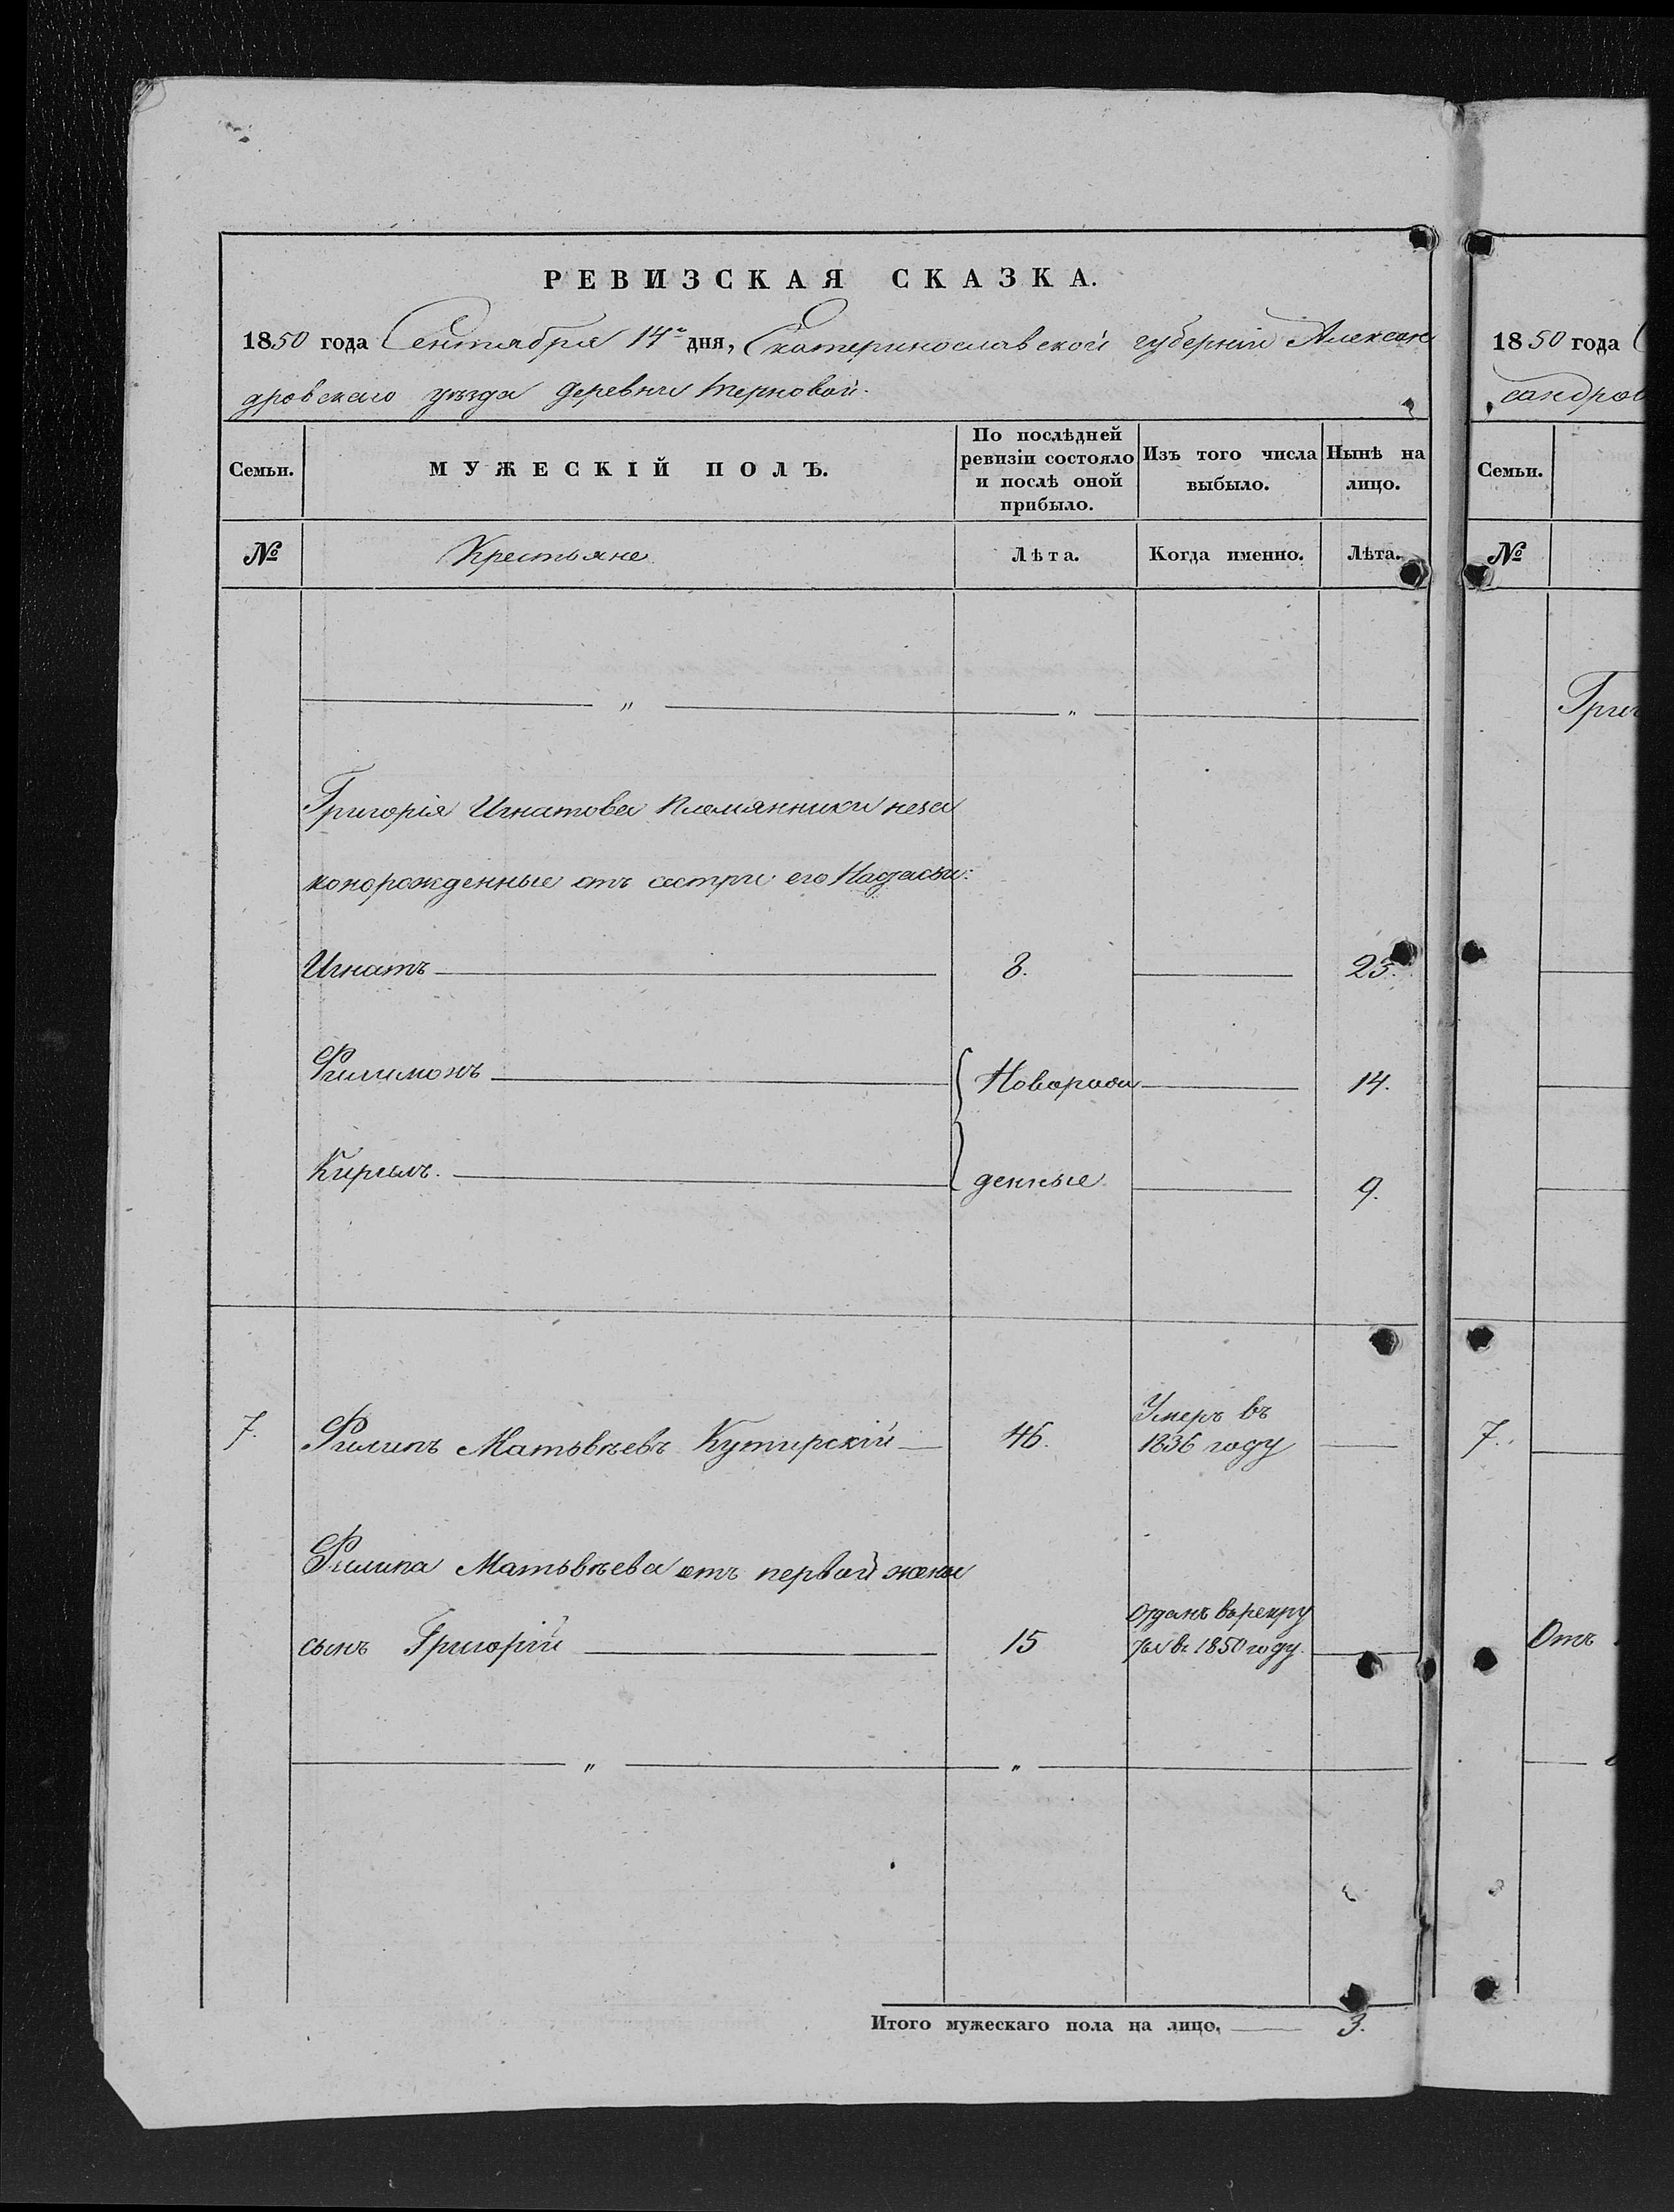 РЕВИЗСКАЯ СКАЗКА.
1850 года Сентября 14го дня, Екатеринославской губернии Алексан
дровскаго уѣзда деревни Терновой.
Семьи.
МУЖЕСКІЙ ПОЛЪ.
По послѣдней
ревизіи состояло
и послѣ оной
прибыло.
Изъ того числа
выбыло.
Нынѣ на
лицо.
№
Крестьяне
Лѣта.
Когда именно.
Лѣта.
Григорія Игнатова племянники неза
конорожденные отъ сестри его
Игнатъ 8. 23.
Филимонъ Новорож 14.
Кирилъ. денные 9.
7. Филипъ Матвѣевъ Кутирскій 46. Умеръ въ
1836 году
Филипа Матвѣева отъ первой жени
сынъ Григорій 15 Отданъ в рекру
ты въ 1850 году.
Итого мужескаго пола на лицо, 3.
1850 года
сандров
Семьи.
№
Григ
7.
Отъ